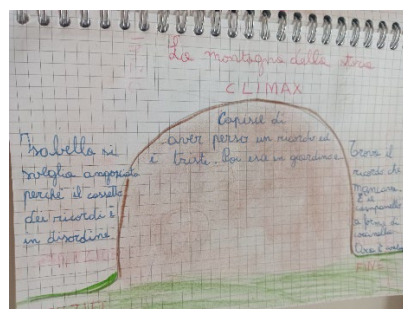 La montagna della storia
CLIMAX
Isabella si
sveglia angosciata
perché il cassetto
dei ricordi è
in disordine
Capisce di
aver perso un ricordo ed
è triste. Poi esce in giardino e
trova il
ricordo che
mancava.
È a
forma di
coccinella
Ora è